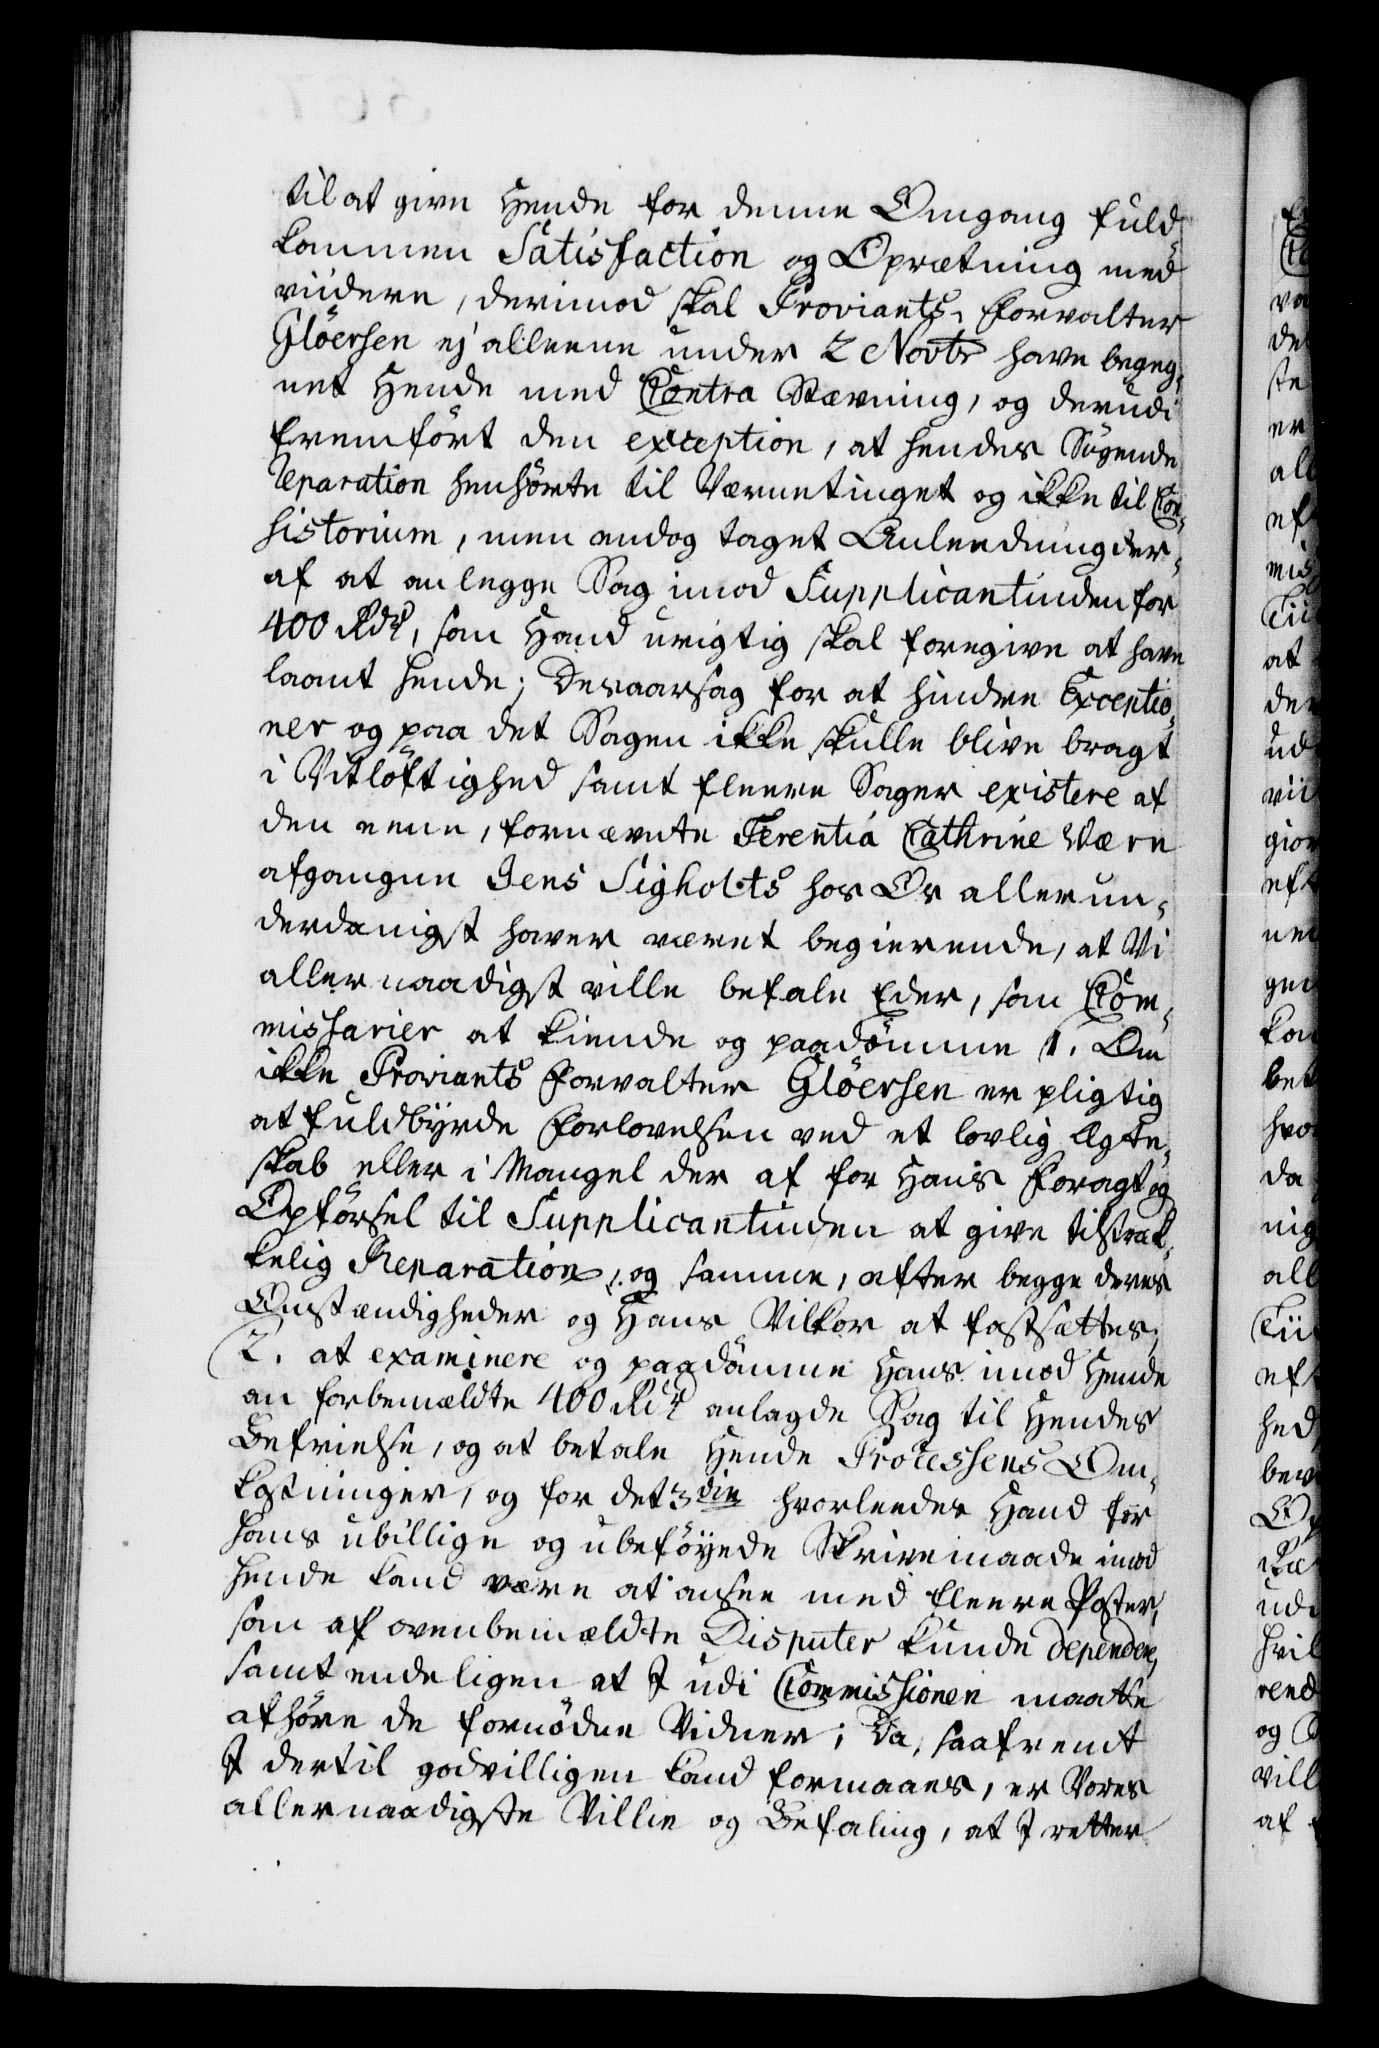 til at give Hende for denne Omgang fuld-
kommen Satisfaction og Oprætning med
viidere, derimod skal Proviants-Forvalter
Glöersen ej alleene under 2 Novbr have begeg-
net Hende med Contra Stævning, og derudi
fremført den exception, at hendes Søgende
Reparation henhørte til Værnetinget og ikke til Con-
sistorium, men endog taget Anleedning der-
af at anlegge Sag imod Supplicantinden for
400 Rdr, som Hand urigtig skal foregive at have
laant hende; Desaarsag for at hindre Exceptio-
ner og paa det Sagen ikke skulle blive bragt
i Vitløftighed samt fleere Sager existere af
den eene, fornævnte Terentia Cathrine Værn
afgangne Jens Sigholts hos Os allerun-
derdanigst haver været begierende, at Vi
allernaadigst ville befale Eder, som Com-
missarier at kiende og paadømme 1. Om
ikke Proviants Forvalter Glöersen er pligtig
at fuldbyrde Forlovelsen ved et lovlig Ægte-
skab eller i Mangel der af for Hans Foragt og
Opførsel til Supplicantinden at give tilstræk-
kelig Reparation, og samme, efter begge deres
Omstændigheder og Hans Vilkor at fastsættes;
2. at examinere og paadömme Hans imod Hende
an forbemældte 400 Rdr anlagde Sag til Hendes
Befrielse, og at betale Hende Processens Om-
kostninger, og for det 3die hvorleedes Hand for
hans ubillige og ubeføyede Skrivemaade imod
hende kand være at ansee med fleere Poster,
som af ovenbemældte Disputer kunde dependere,
samt endeligen at I udi Commissionen maatte
afhøre de fornødne Vidner; Da, saafremt
I dertil godvilligen kand formaaes, er Vores
allernaadigste Villie og Befaling, at I retter